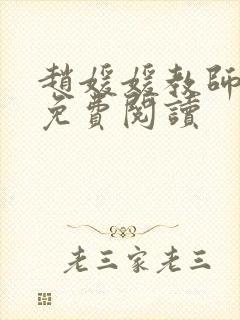 趙媛媛教師
免費閱讀
老三家老三